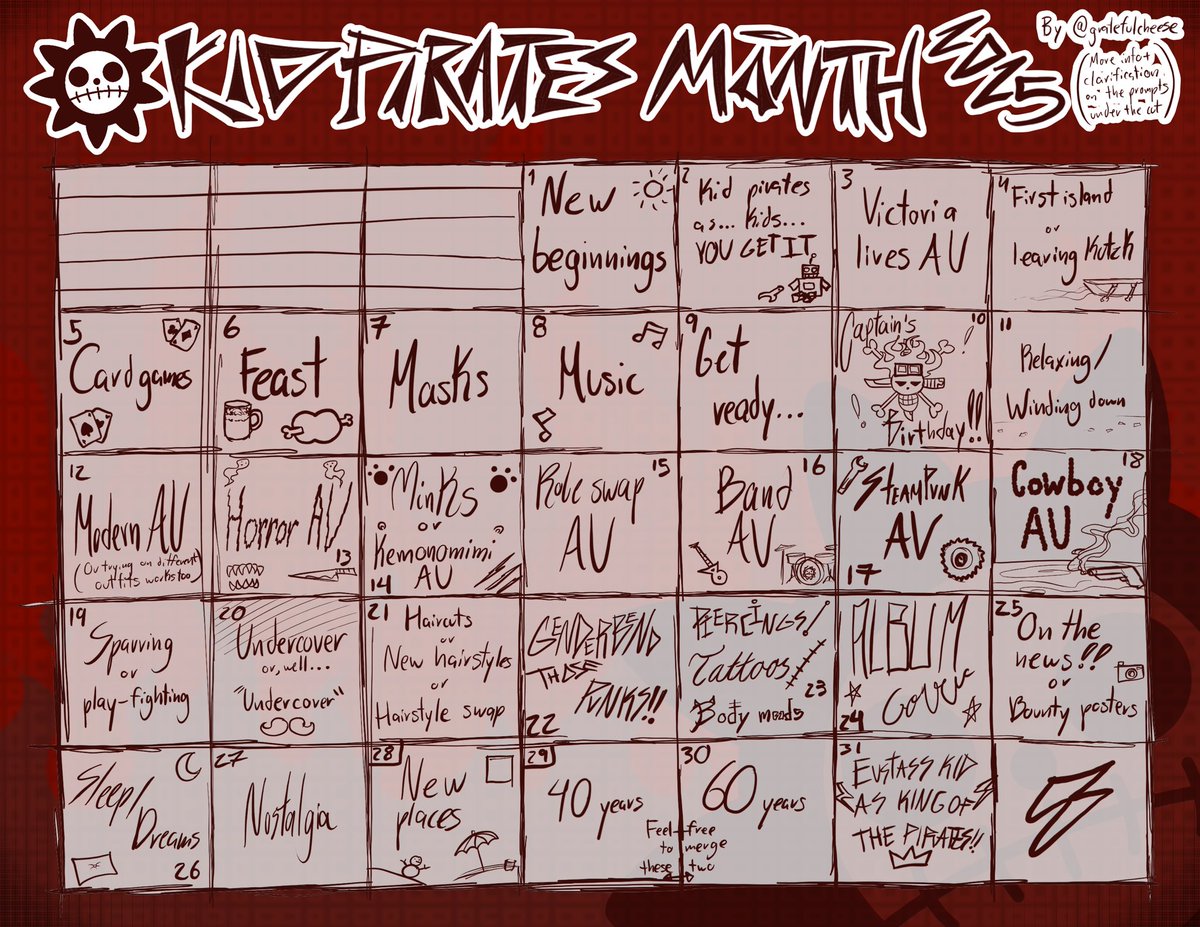 KID PIRATES MONTH 2025
By @gratefulcheese
(More info+
clarification
on the prompts
under the cut)
1
New
beginnings
2
Kid pirates
as... kids...
YOU GET IT
3
Victoria
lives AU
4
First island
or
leaving Kutzk
5
Card games
6
Feast
7
Masks
8
Music
9
Get
ready...
10
Captain's
Birthday!!
11
Relaxing/
Winding down
12
Modern AU
(Or trying on different
outfits works too)
Horror AU
13
Minks
or
Kemonomimi
AU
14
15
Role swap
AU
16
Band
AU
Steampunk
AU
17
18
Cowboy
AU
19
Sparring
or
play-fighting
20
Undercover
or, well...
"Undercover"
21
Haircuts
or
New hairstyles
or
Hairstyle swap
GENDERBEND
THOSE
PUNKS!!
22
PIERCINGS!
Tattoos
23
Body mods
ALBUM
Cover
24
25
On the
news!!
or
Bounty posters
Sleep/
Dreams
26
27
Nostalgia
28
New
places
29
40 years
30
60 years
Feel free
to merge
these two
31
EUSTASS KID
AS KING OF
THE PIRATES!!